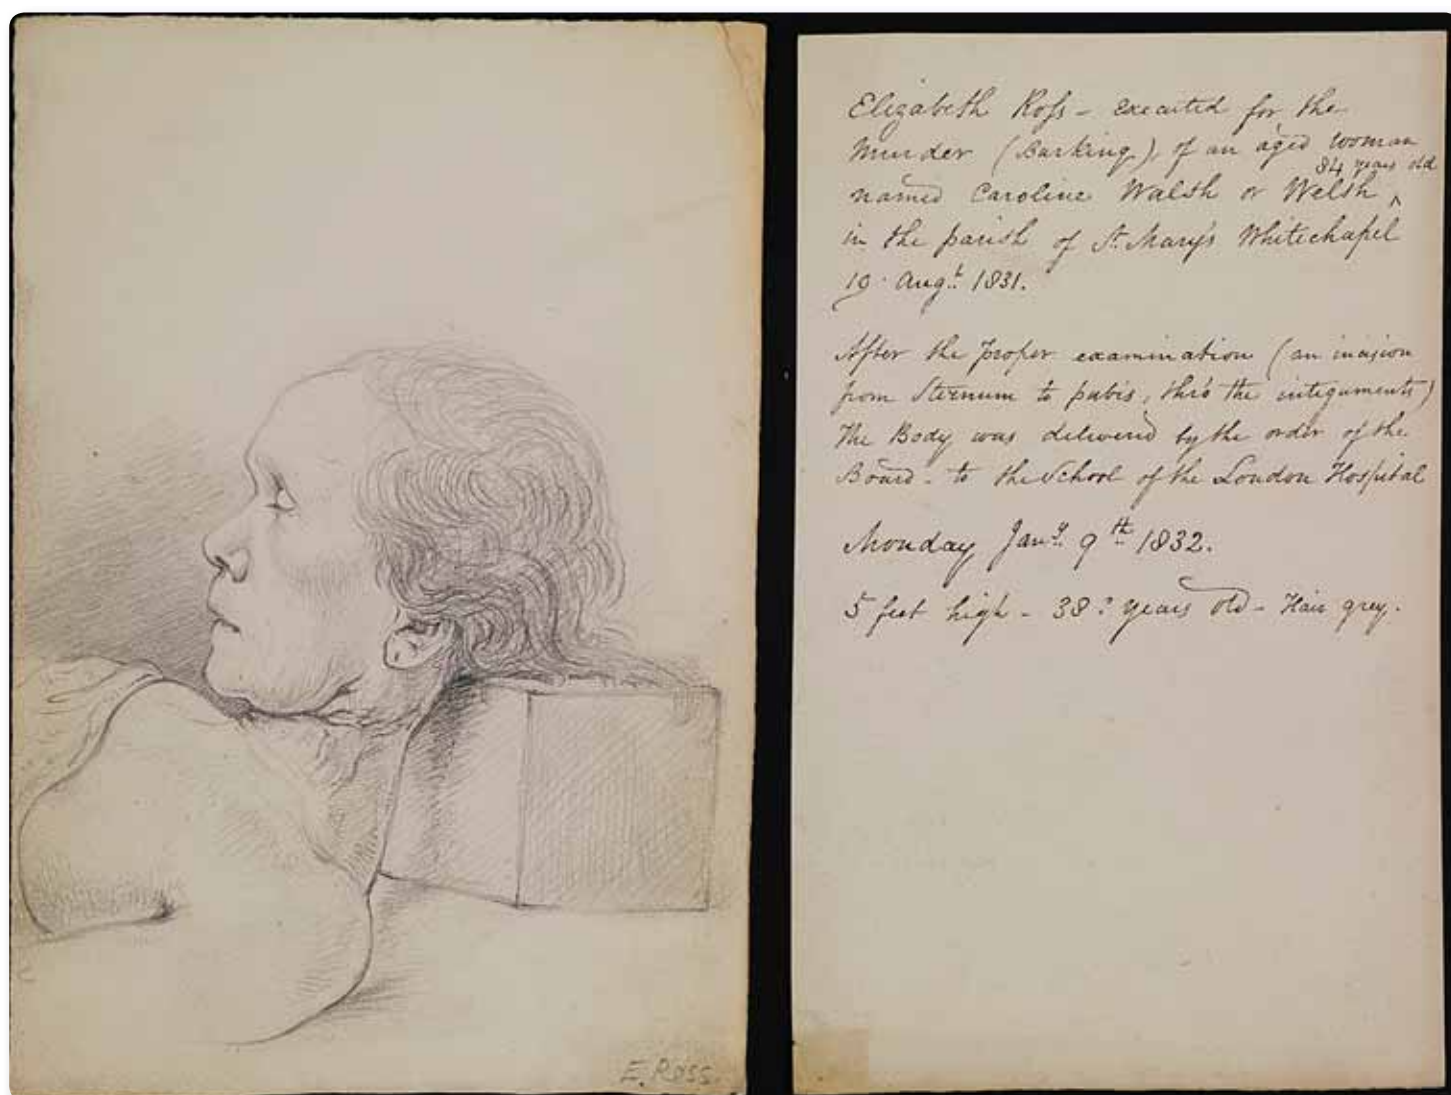 E. Ross.
Elizabeth Roſs - executed for the
Murder (Burking), of an aged woman
84 years old
named Caroline Walsh or Welsh ^
in the parish of St. Mary's Whitechapel
19 Augt. 1831.
After the proper examination (an incision
from Sternum to pubis, thro the integuments)
The Body was delivered by the order of the
Board - to the School of the London Hospital
Monday Jany. 9th 1832.
5 feet high - 38? years old - Hair grey.